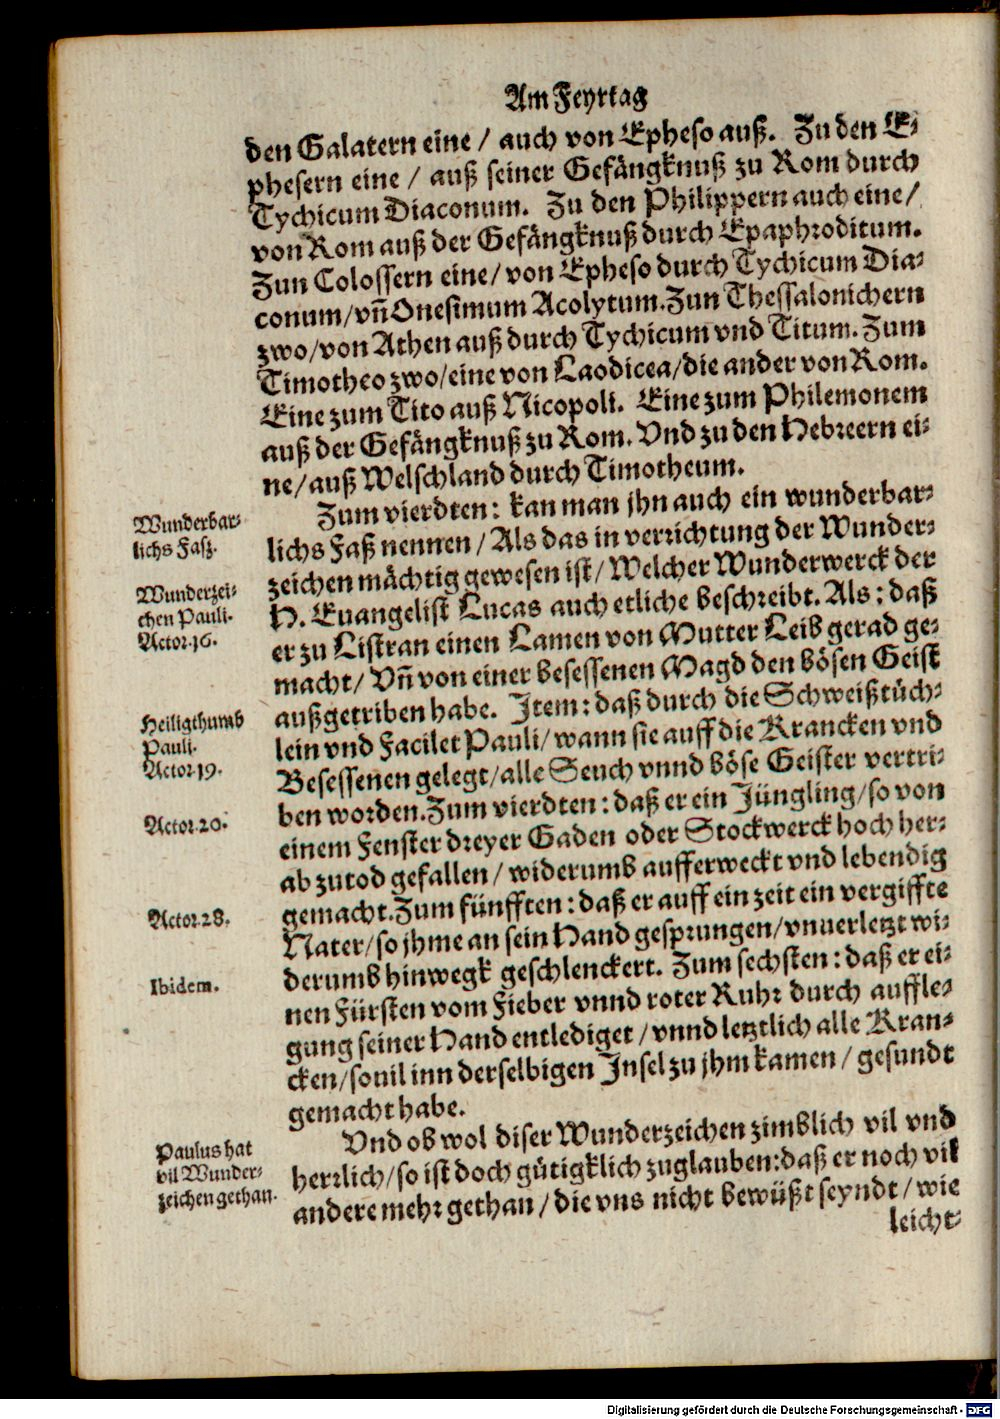 Am Feyrtag
den Galatern eine / auch von Epheso auß. Zu den E-
phesern eine / auß seiner Gefängknuß zu Rom durch
Tychicum Diaconum. Zu den Philippern auch eine /
von Rom auß der Gefängknuß durch Epaphroditum.
Zun Colossern eine / von Epheso durch Tychicum Dia-
conum / vñ Onesimum Acolytum. Zun Thessalonichern
zwo / von Athen auß durch Tychicum vnd Titum. Zum
Timotheo zwo / eine von Laodicea / die ander von Rom.
Eine zum Tito auß Nicopoli. Eine zum Philemonem
auß der Gefängknuß zu Rom. Vnd zu den Hebreern ei-
ne / auß Welschland durch Timotheum.
Wunderbar-
lichs Faß.
Zum vierdten: kan man jhn auch ein wunderbar-
lichs Faß nennen / Als das in verrichtung der Wunder-
zeichen mächtig gewesen ist / Welcher Wunderwerck der
H. Euangelist Lucas auch etliche beschreibt. Als: daß
er zu Listran einen Lamen von Mutter Leib gerad ge-
macht / Vñ von einer besessenen Magd den bösen Geist
außgetriben habe. Item: daß durch die Schweißtüch-
lein vnd Facilet Pauli / wann sie auff die Krancken vnd
Besessenen gelegt / alle Seuch vnnd böse Geister vertri-
ben worden. Zum vierdten: daß er ein Jüngling / so von
einem Fenster dreyer Gaden oder Stockwerck hoch her-
ab zutod gefallen / widerumb aufferweckt vnd lebendig
gemacht. Zum fünfften: daß er auff ein zeit ein vergiffte
Nater / so jhme an sein Hand gesprungen / vnuerletzt wi-
derumb hinwegk geschlenckert. Zum sechsten: daß er ei-
nen Fürsten vom Fieber vnnd roter Ruhr durch auffle-
gung seiner Hand entlediget / vnnd letztlich alle Kran-
cken / souil inn derselbigen Insel zu jhm kamen / gesundt
gemacht habe.
Wunderzei-
chen Pauli.
Actor. 16.
Heiligthumb
Pauli.
Actor. 19.
Actor. 20.
Actor. 28.
Ibidem.
Vnd ob wol diser Wunderzeichen zimblich vil vnd
herrlich / so ist doch gütigklich zuglauben: daß er noch vil
andere mehr gethan / die vns nicht bewüßt seyndt / wie
leicht-
Paulus hat
vil Wunder-
zeichen gethan.
Digitalisierung gefördert durch die Deutsche Forschungsgemeinschaft - DFG